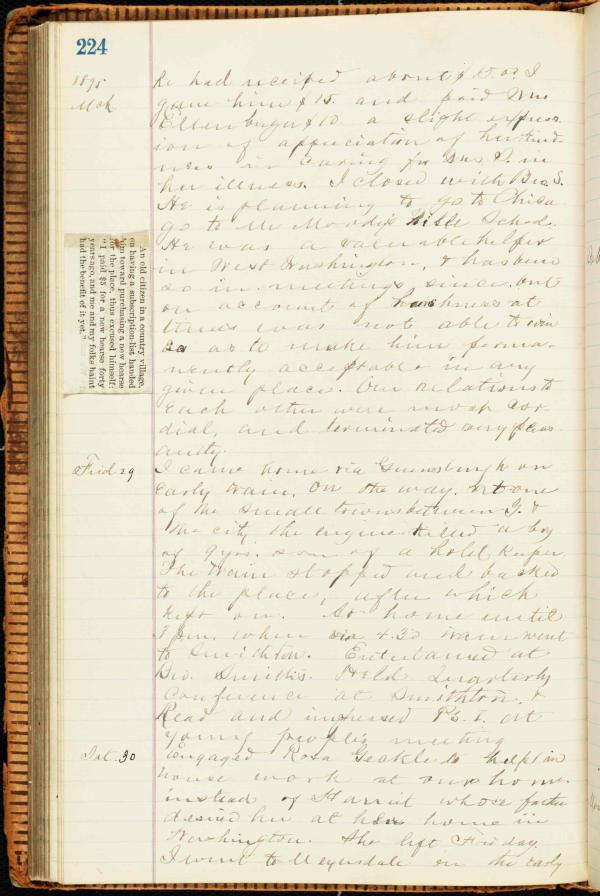 224
1895
Mch
he had received about $15.00 I
gave him $15. and paid Mrs
Ellenberger $10. a slight express-
ion of appreciation of her kind-
ness in caring for Mrs S. in
her illness. I closed with Bro. S.
He is planning to go to Chica
go to Mr Moody's Bible School.
He was a valuable helper
in West Washington, & has been
so in meetings since. but
on account of harshness at
times was not able to win
so as to make him perma-
nently acceptable in any
given place. Our relations to
each other were most cor-
dial, and terminated very pleas-
antly.
An old citizen in a country village,
on having a subscription-list handed
him toward purchasing a new hearse
for the place, thus excused himself:
"I paid $5 for a new hearse forty
years ago, and me and my folks haint
had the benefit of it yet."
Frid 29
I came home via Greensburgh on
early train. On the way. at one
of the small towns between G. &
the city the engine killed a boy
of 9 yrs. son of a hotel keeper.
The train stopped and backed
to the place, after which
kept on. At home until
P.m. when via 4.30 train went
to Smithton. Entertained at
Bro. Smith's. Held Quarterly
Conference at Smithton. &
Read and impressed at
young people's meeting
Sat. 30
Engaged Rosa to help in
house work at our home.
instead of Harriet whose father
desired her at her home in
Washington. She left Friday.
I went to Meyersdale on the early